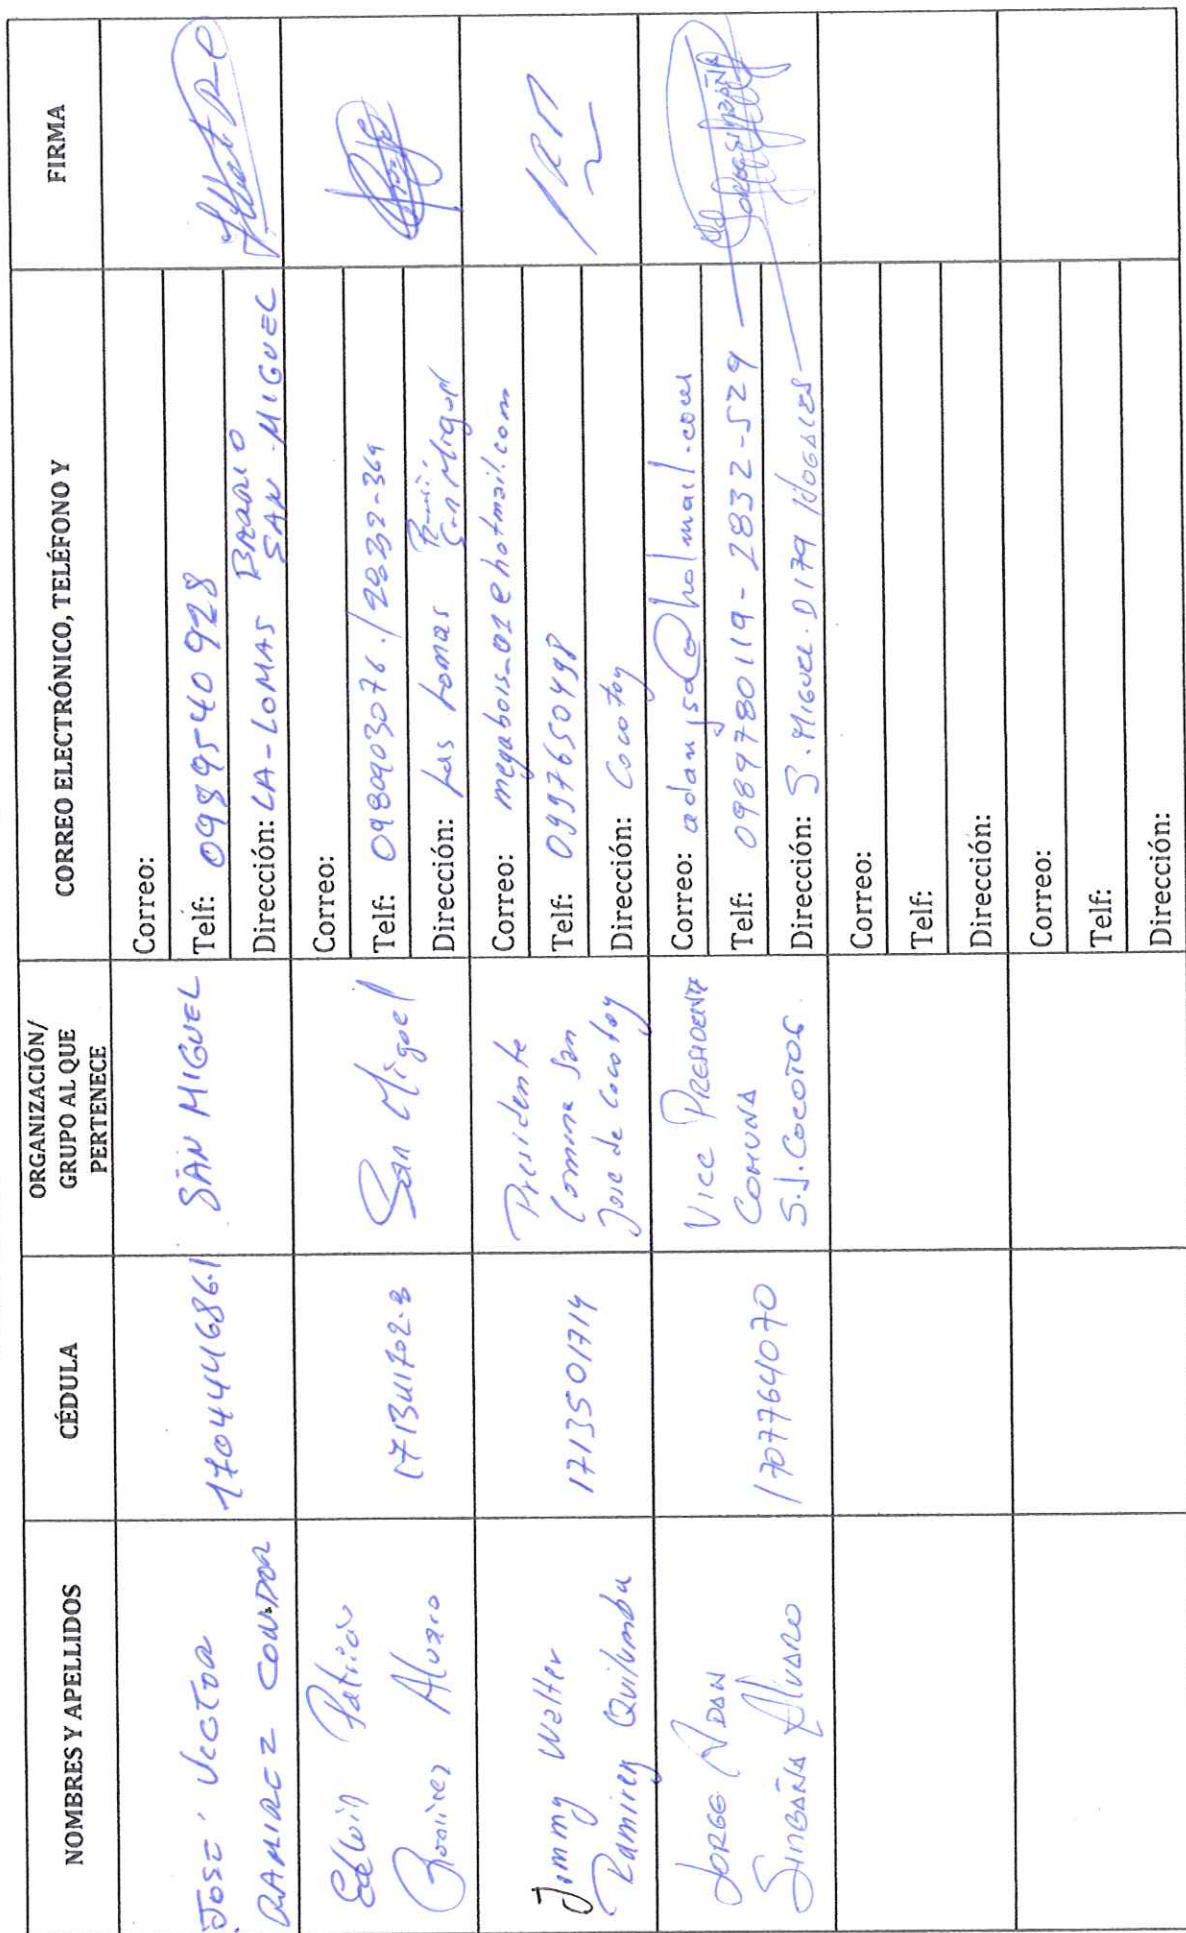 NOMBRES Y APELLIDOS
CÉDULA
ORGANIZACIÓN/
GRUPO AL QUE
PERTENECE
CORREO ELECTRÓNICO, TELÉFONO Y
FIRMA
JOSÉ VICTOR
RAMIREZ CONDOR
170444686-1
SAN MIGUEL
Correo:
Telf: 0989540928
Dirección: LA-LOMAS BARRIO
SAN MIGUEL
Edwin Patricio
Ramirez Alvaro
171341702-3
San Miguel
Correo:
Telf: 0980903076./2832-369
Dirección: Las Lomas
San Miguel
Jimmy Walter
Ramirez Quilumba
1713501714
Presidente
Comuna San
Jose de Cocotog
Correo: megabois-01@hotmail.com
Telf: 0997650498
Dirección: Cocotog
JORGE ADAN
SIMBAÑA ALVARO
1707764070
VICE PRESIDENTE
COMUNA
S.J. COCOTOG.
Correo: adanjsa@hotmail.com
Telf: 0989780119 - 2832-529
Dirección: S. MIGUEL. D179 NOGALES
JORGE SIMBAÑA
Correo:
Telf:
Dirección:
Correo:
Telf:
Dirección: